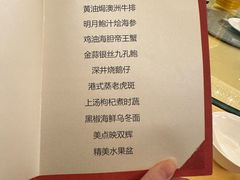 黄油焗澳洲牛排
明月鲍汁烩海参
鸡油海胆帝王蟹
金蒜银丝九孔鲍
深井烧鹅仔
港式蒸老虎斑
上汤枸杞煮时蔬
黑椒海鲜乌冬面
美点映双辉
精美水果盆